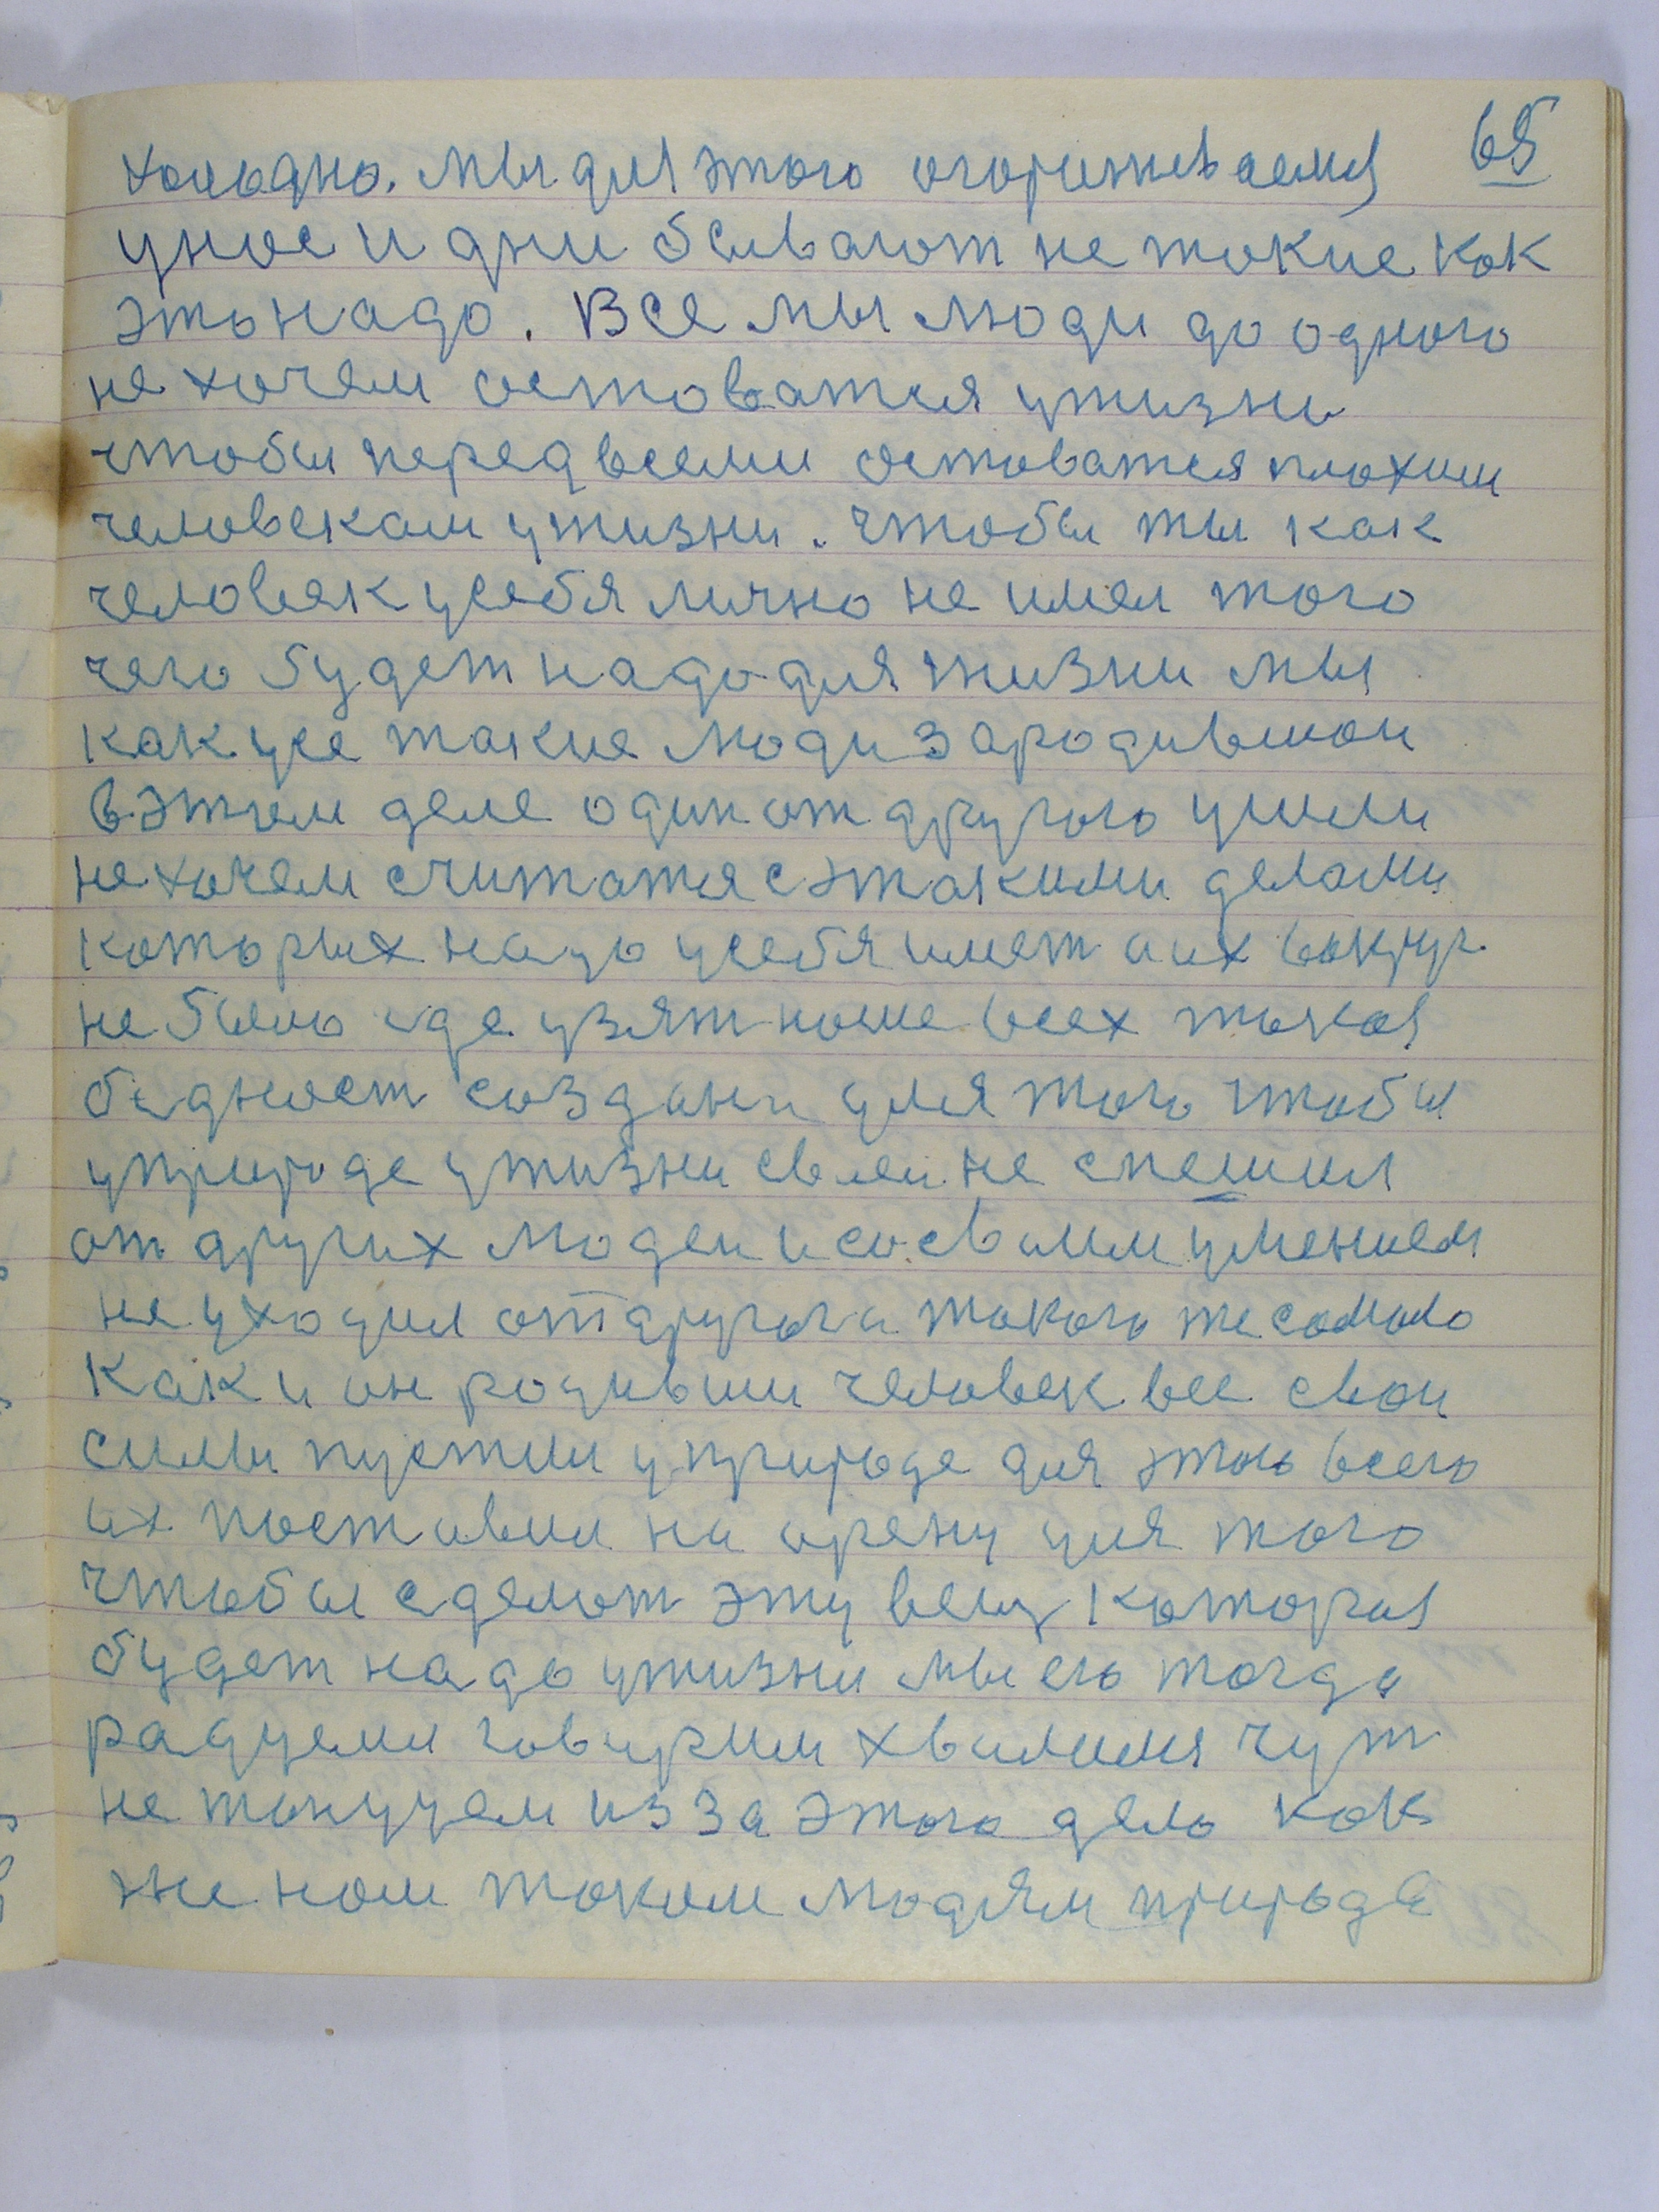 65
холодно. мы для этого огораживаемся
унас и дни бывают не такие как
это надо. Все мы люди до одного
не хочем остоватся ужизни
чтобы перед всеми остоватся плохим
человекам ужизни. Чтобы ты как
человек усебя лично не имел того
чего будет надо для жизни мы
как усе такие люди зародившои
вэтим деле один от другого ушли
не хочем считатся с этакими делами
которых надо усебя имет а их вокруг
не было где узят наше всех такая
бедност создана для того чтобы
уприроде ужизни своеи не спешил
от других людеи и сосвоим умением
не уходил от другога такого же самого
как и он родивши человек все свои
силы пустил уприроде для этого всего
их поставил на арену для того
чтобы сделат эту вещ которая
будет надо ужизни мы его тогда
радуемся говорим хвалимся чут
не танцуем из за этого дела как
же нам таким людям природе